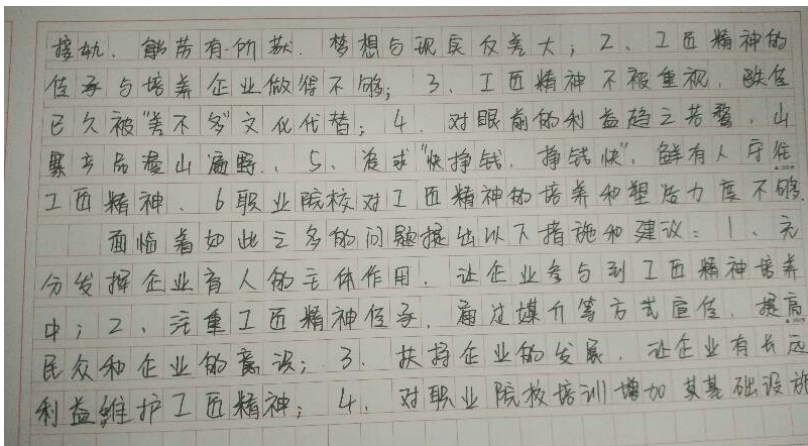 接轨、能劳有所获、梦想与现实反差大；2、工匠精神的
传承与培养企业做得不够；3、工匠精神不被重视，缺位
已久被“差不多”文化代替；4、对眼前的利益趋之若鹜，山
寨产品漫山遍野、5、追求“快挣钱，挣钱快”，鲜有人守住
工匠精神、6职业院校对工匠精神的培养和塑造力度不够.
面临着如此之多的问题提出以下措施和建议：1、充
分发挥企业育人的主体作用，让企业参与到工匠精神培养
中；2、注重工匠精神传承，通过媒介等方式宣传，提高
民众和企业的意识；3、扶持企业的发展，让企业有长远
利益维护工匠精神；4、对职业院校培训增加其基础设施